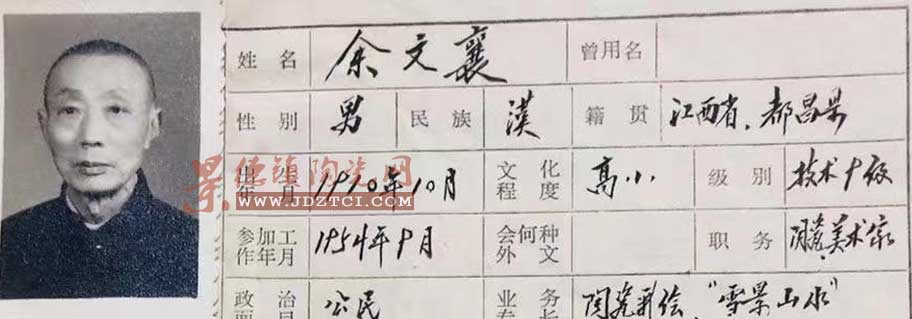 姓名 余文襄 曾用名
性别 男 民族 漢 籍贯 江西省、都昌县
出生年月 1910年10月 文化程度 高小 级别 技术9级
参加工作年月 1954年9月 会何种外文 职务 陶瓷美术家
政治 公民 业务 陶瓷彩绘，"雪景山水"
景德镇陶瓷网
WWW.JDZTCI.COM